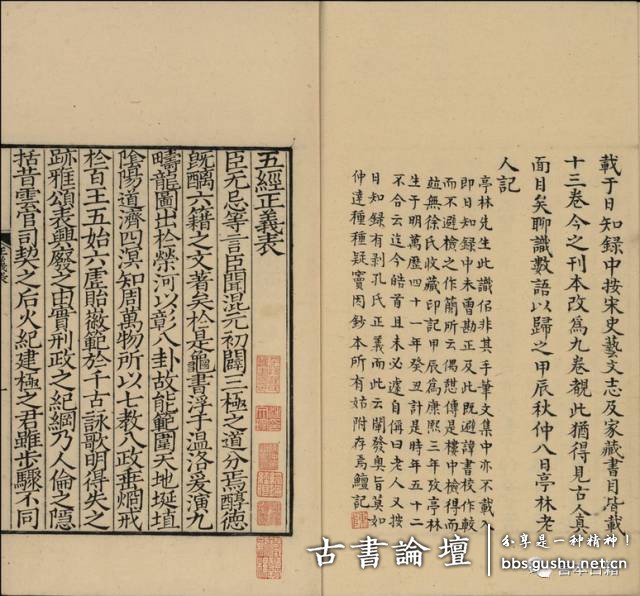 載于日知録中按宋史藝文志及家藏書目皆載
十三卷今之刊本改爲九卷覩此猶得見古人真
面目矣聊識數語以歸之甲辰秋仲八日亭林老
人記
亭林先生此識但非其手筆文集中亦不載入
即日知録中未曽勘正及此既避諱書校作較
而不避檢之作簡所云偶憩傳是樓中檢得而
竝無徐氏收藏印記甲辰爲康熙三年攷亭林
生于明萬歷四十一年癸丑計是時年五十二
不合云迄今皓首且未必遽自偁曰老人又按
日知録有剥孔氏正義而此云闡發奥旨莫如
仲達種種疑竇因鈔本所有姑附存焉鱣記
五經正義表
臣无忌等言臣聞混元初闢三極之道分焉醇德
既醨六籍之文著矣於是龜書浮于温洛爰演九
疇龍圖出於榮河以彰八卦故能範圍天地埏埴
陰陽道濟四溟知周萬物所以七教八政垂烱戒
於百王五始六虛貽徽範於千古詠歌明得失之
跡雅頌表興廢之由實刑政之紀綱乃人倫之隱
括昔雲官司契之后火紀建極之君雖步驟不同
古書論壇
分享是一种精神！
bbs.gushu.net.cn